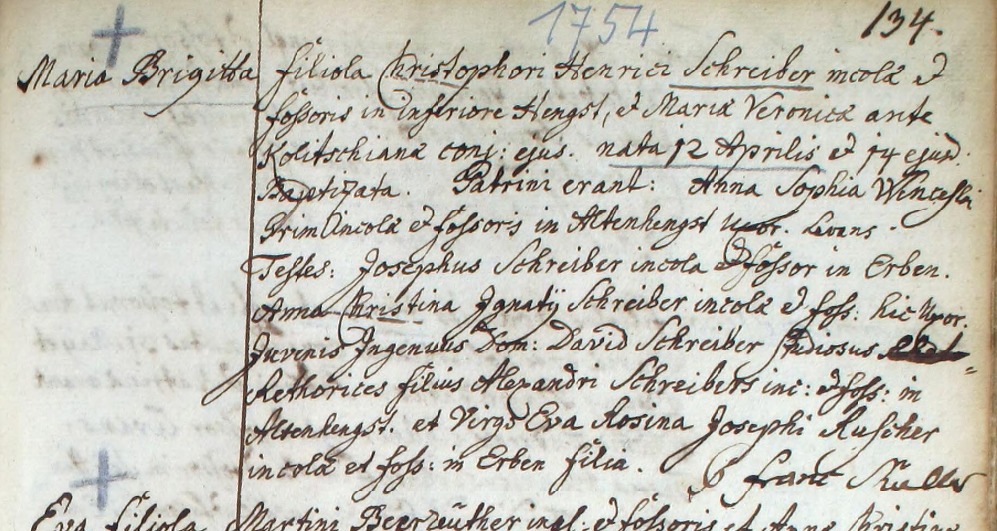 1754
134.
Maria Brigitta filiola Christophori Henrici Schreiber incolæ et
fossoris in inferiore Hengst, et Mariæ Veronicæ ante
Kolitschianæ conj: ejus. nata 12 Aprilis et 14 ejusd.
Baptizata. Patrini erant: Anna Sophia Wenceslai
incolæ et fossoris in Altenhengst uxor. Levans.
Testes: Josephus Schreiber incola et fossor in Erben.
Anna Christina Ignatij Schreiber incolæ et foss: hic uxor.
Juvenis Ingenuus Dom: David Schreiber Studiosus
Rethorices filius Alexandri Schreibers inc: et foss: in
Altenhengst. et Virgo Eva Rosina Josephi Ruscher
incolæ et foss: in Erben filia. P Franc
Eva filiola Martini Beerreuther inql. et fossoris et Annæ